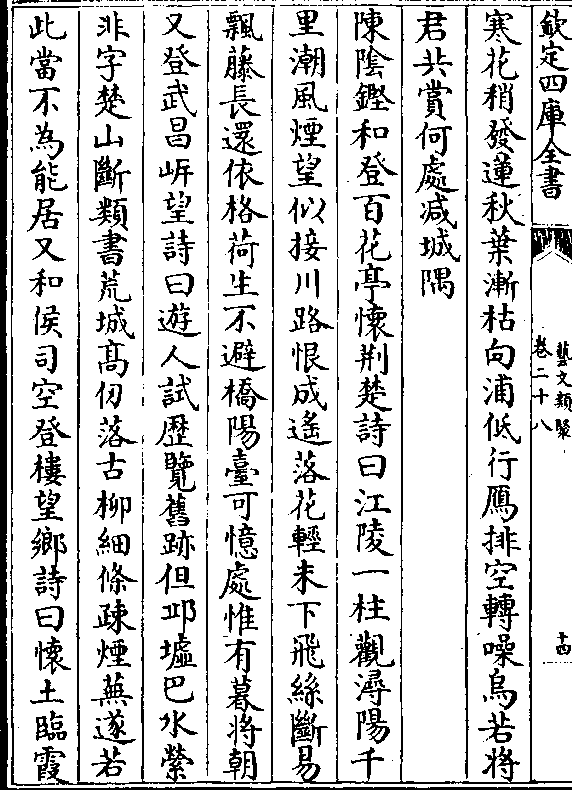 欽定四庫全書
藝文類聚
卷二十八
十四
寒花稍發蓮秋葉漸枯向浦低行鴈排空轉噪烏若將
君共賞何處减城隅
陳陰鏗和登百花亭懷荆楚詩曰江陵一柱觀潯陽千
里潮風煙望似接川路恨成遙落花輕未下飛絲斷易
飄藤長還依格荷生不避橋陽臺可憶處惟有暮將朝
又登武昌㟁望詩曰遊人試歷覽舊跡但邱墟巴水縈
非字楚山斷類書荒城髙仞落古柳細條疎煙蕪遂若
此當不為能居又和侯司空登樓望鄉詩曰懷土臨霞